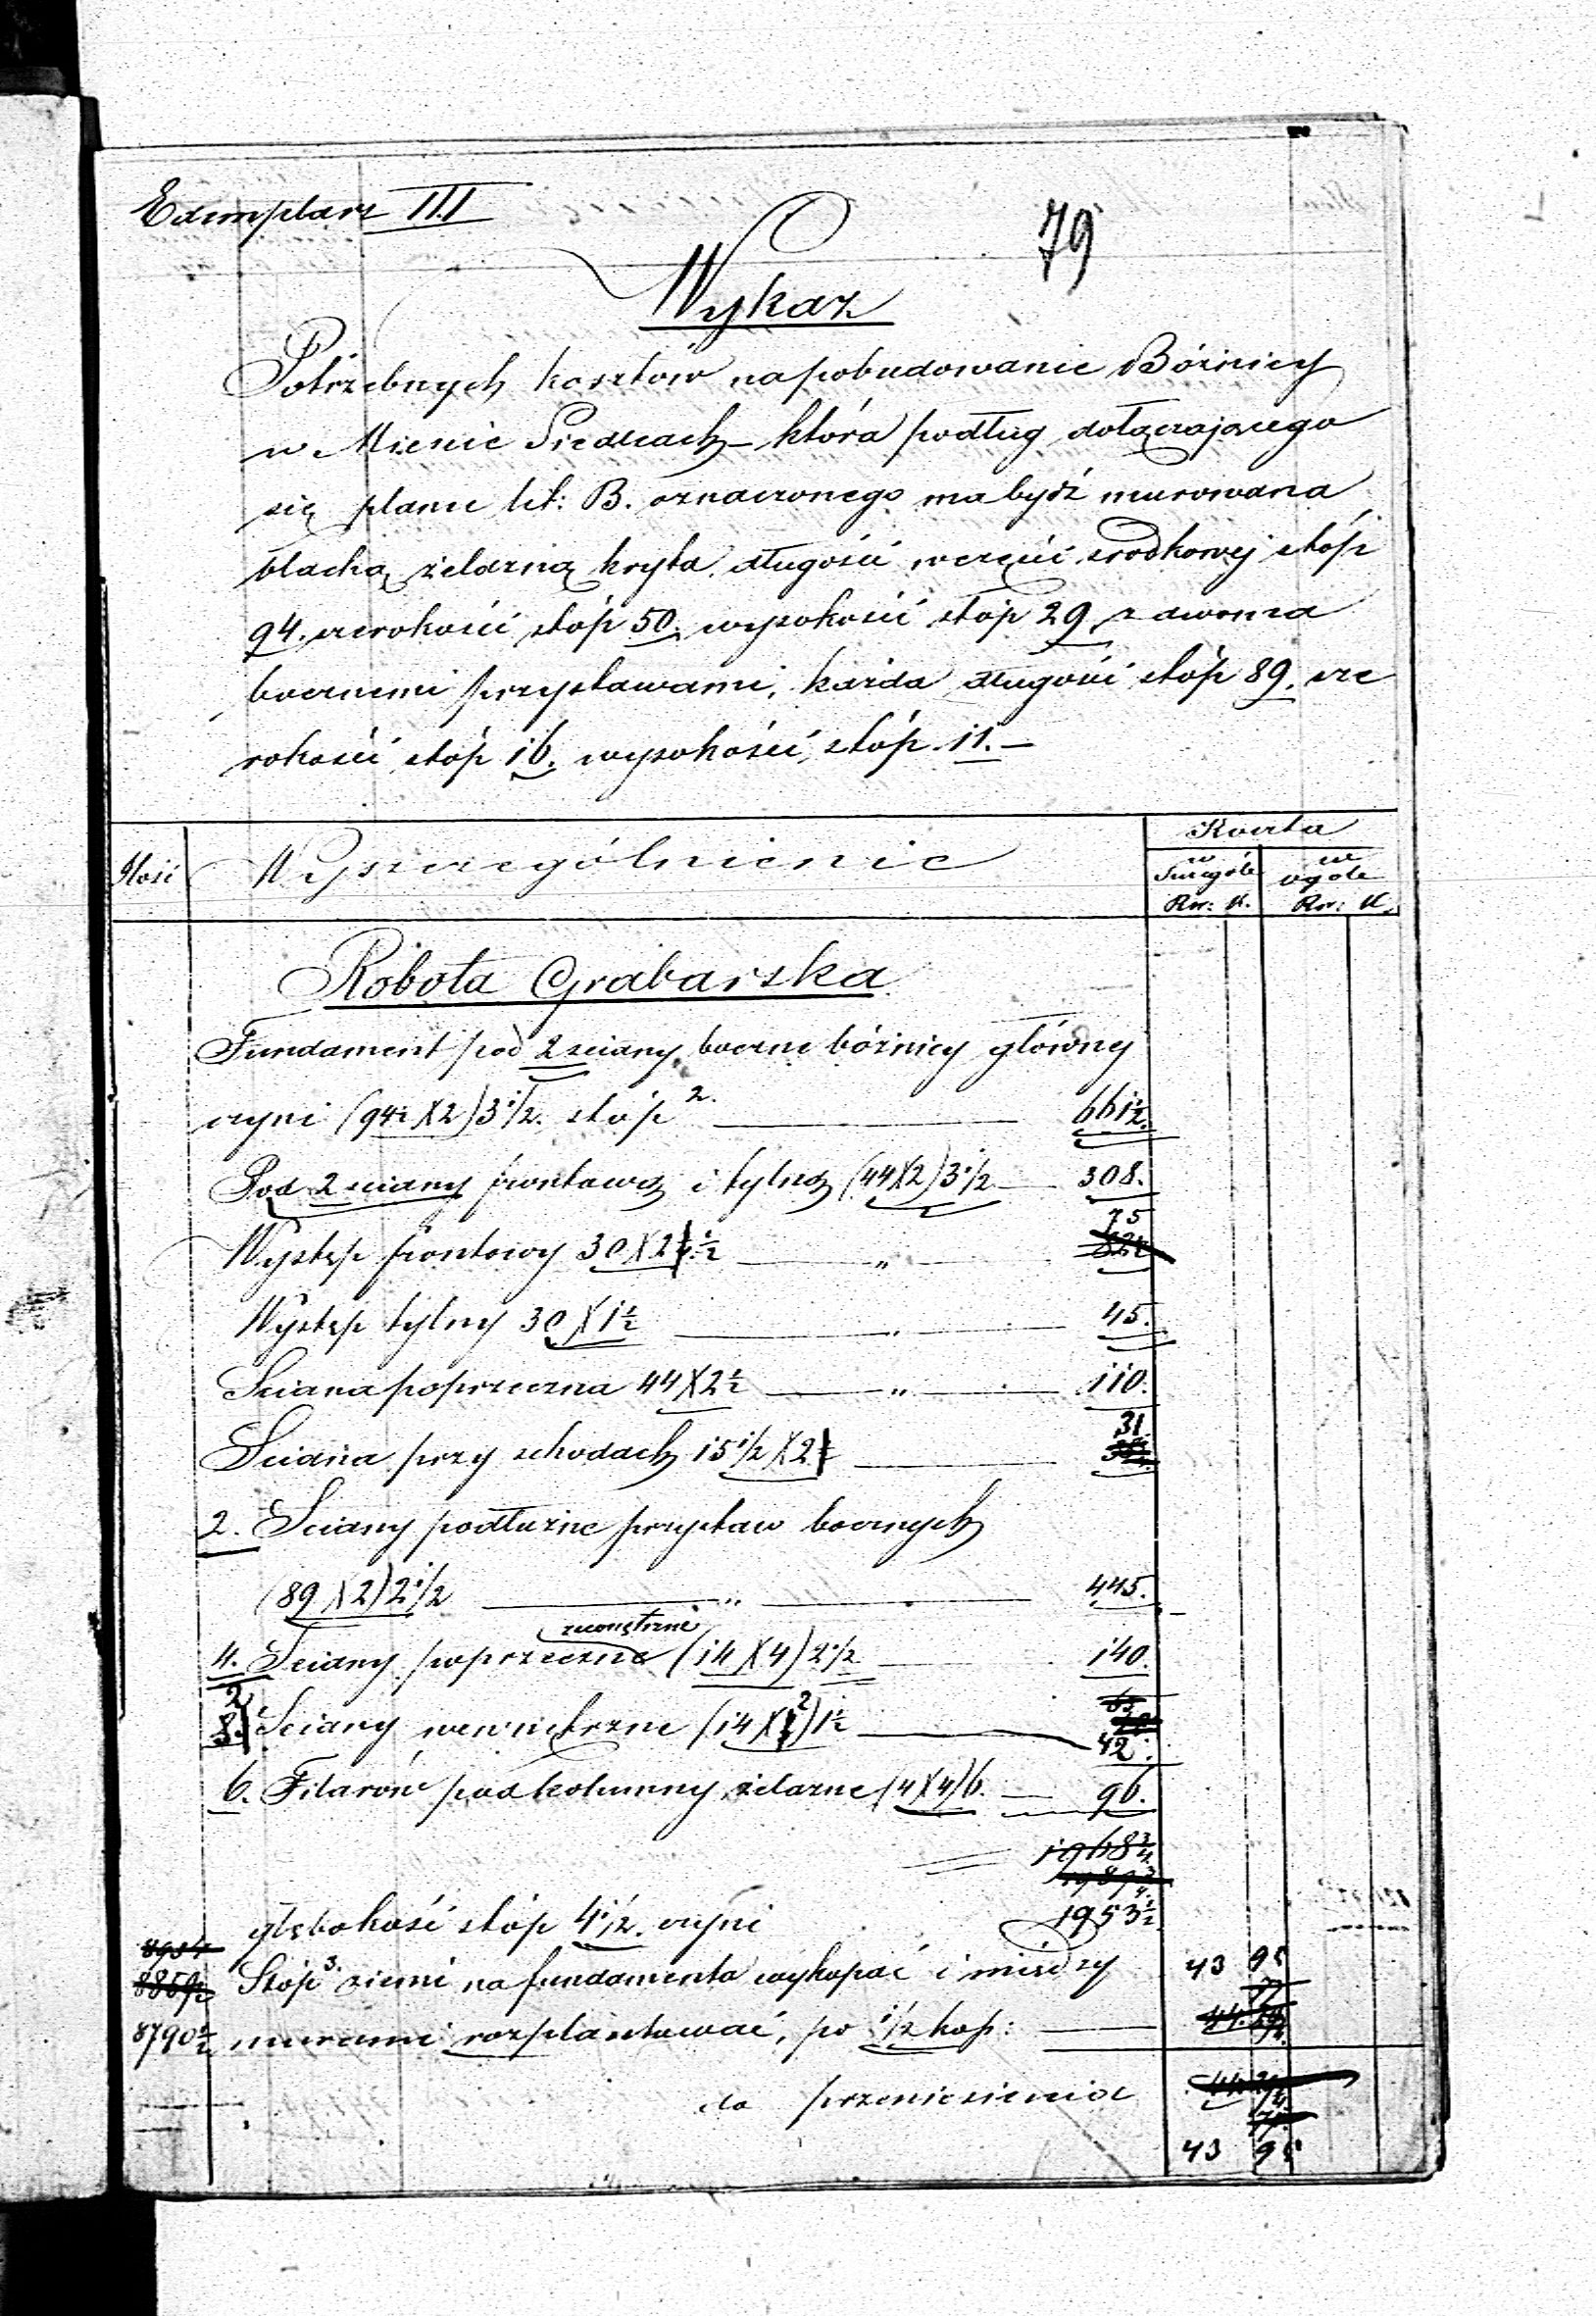 Exemplarz III
79
Wykaz
Potrzebnych kosztów na pobudowanie Bóżnicy
w Mieście Siedlcach – która podług dołączającego
się planu lit: B. oznaczonego ma bydź murowana
blachą żelazną kryta, długości w części srodkowej stóp
94. szerokości stóp 50. wysokości stóp 29. z dwoma
bocznemi przystawami, każda długości stóp 89. sze
rokości stóp 16. wysokości stóp 11. –
Ilość Wyszczególnienie Koszta
w Szczególe w ogóle
Rsr: K. Rsr: K.
Robota Grabarska
Fundament pod 2 sciany boczne bóżnicy głównej
czyni (94½ X 2) 3 1/2. stóp 2. 661½.
Pod 2 sciany frontową i tylną (44 X 2) 3 1/2 308.
Występ frontowy 30 X 2½ „ 75
Występ tylny 30 X 1½ „ 45.
Sciana poprzeczna 44 X 2½ „ 110.
Sciana przy schodach 15 1/2 X 2 31.
2. Sciany podłużne przystaw bocznych
(89 X 2) 2 1/2 „ 445.
zewnętrzne
4. Sciany poprzeczne (14 X 4) 2 1/2 140.
2 Sciany wewnetrzne (14 X 2) 1½ 42.
6. Filarów pod kolumny żelazne (4 X 4) 6. 96.
1968¾
1989¾
głębokość stóp 4 1/2. czyni 1953½
Stóp 3. ziemi na fundamenta wykopać i między 43 95
8790½ murami rozplantować, po 1/2 kop:
do przeniesienia
43 95